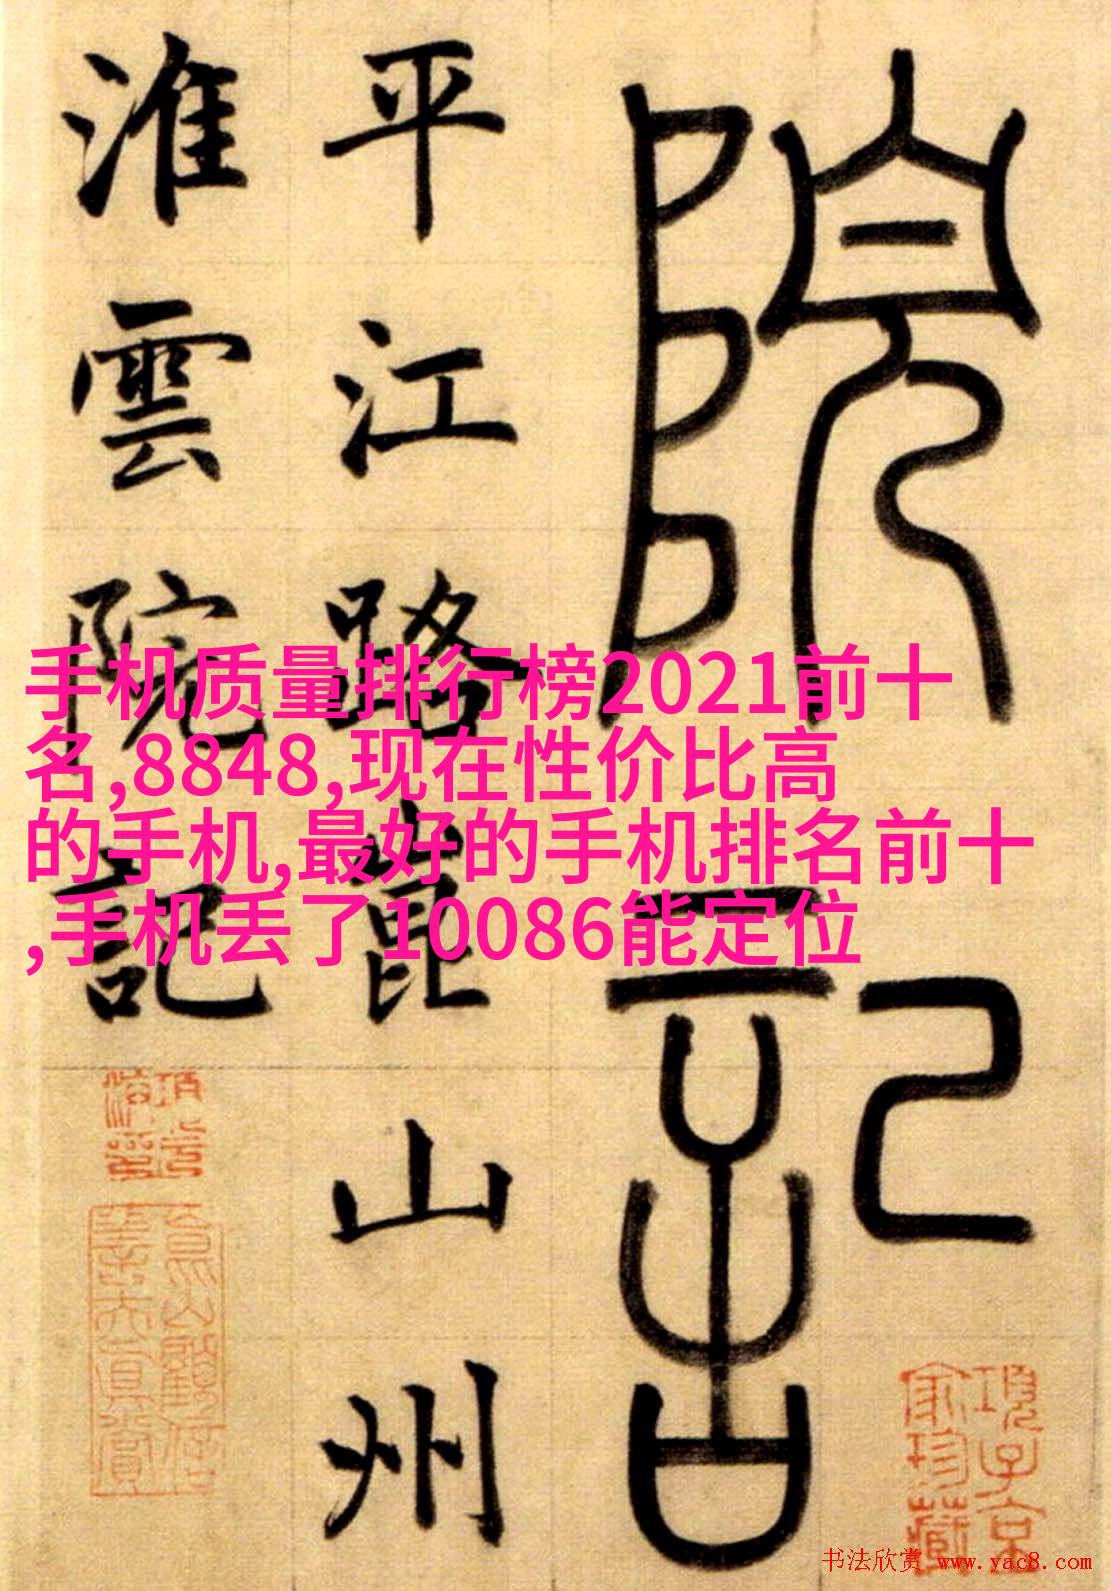 院記
平江路崑山州
淮雲院記
手机质量排行榜2021前十
名,8848,现在性价比高
的手机,最好的手机排名前十
,手机丢了10086能定位
項子京
家珍藏
书法欣赏 www.yac8.com